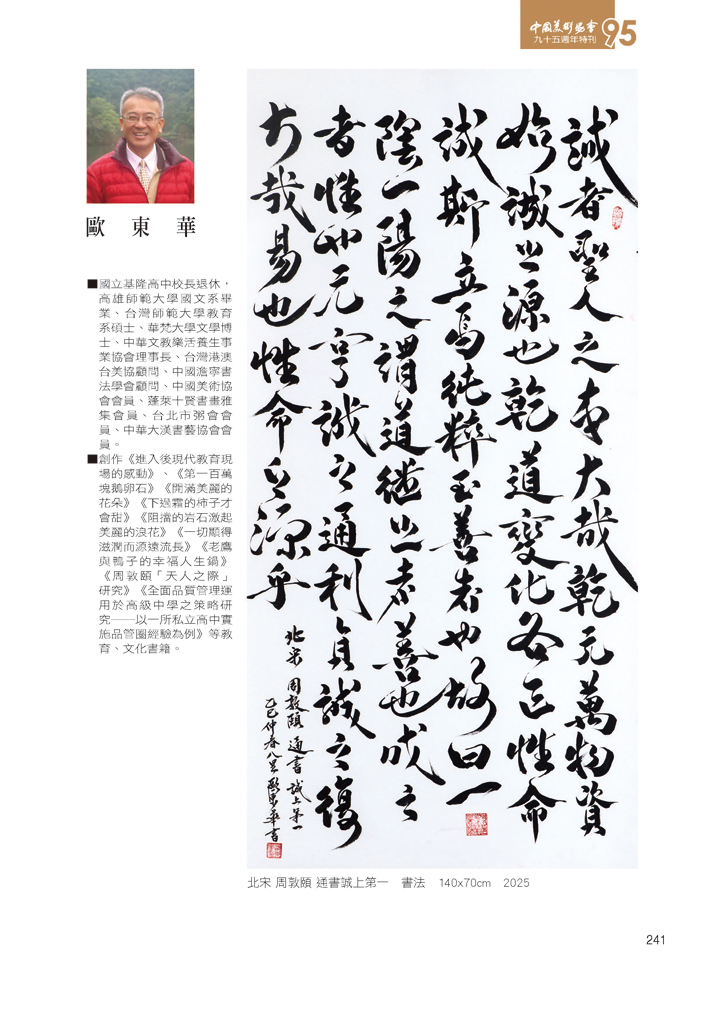 中國美術協會
九十五週年特刊
95
歐東華
■國立基隆高中校長退休，
高雄師範大學國文系畢
業、台灣師範大學教育
系碩士、華梵大學文學博
士、中華文教樂活養生事
業協會理事長、台灣港澳
台美協顧問、中國澹寧書
法學會顧問、中國美術協
會會員、蓬萊十賢書畫雅
集會員、台北市粥會會
員、中華大漢書藝協會會
員。
■創作《進入後現代教育現
場的感動》、《第一百萬
塊鵝卵石》《開滿美麗的
花朵》《下過霜的柿子才
會甜》《阻擋的岩石激起
美麗的浪花》《一切顯得
滋潤而源遠流長》《老鷹
與鴨子的幸福人生鍋》
《周敦頤「天人之際」
研究》《全面品質管理運
用於高級中學之策略研
究──以一所私立高中實
施品管圈經驗為例》等教
育、文化書籍。
誠者聖人之本大哉乾元萬物資
始誠之源也乾道變化各正性命
誠斯立焉純粹至善者也故曰一
陰一陽之謂道繼之者善也成之
者性也元亨誠之通利貞誠之復
大哉易也性命之源乎
北宋 周敦頤 通書 誠上第一
乙巳仲春八里歐東華書
北宋 周敦頤 通書誠上第一　書法　140x70cm　2025
241